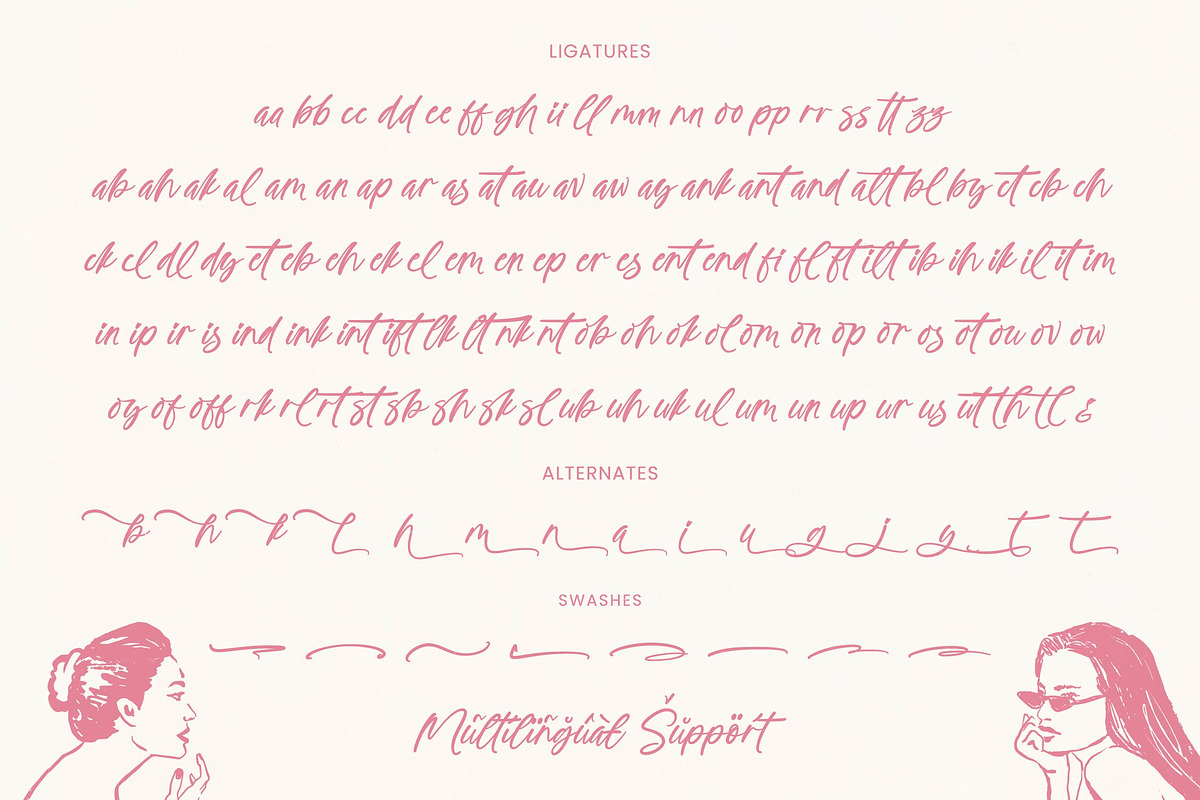 LIGATURES
aa bb cc dd ee ff gh ii ll mm nn oo pp rr ss tt zz
ab ah ak al am an ap ar as at au av aw ay ank ant and alt bl by ct cb ch
ck cl dl dy et eb eh ek el em en ep er es ent end fi fl ft ilt ib ih ik il it im
in ip ir is ind ink int ift lk lt nk nt ob oh ok ol om on op or os ot ou ov ow
oy of off rk rl rt st sb sh sk sl ub uh uk ul um un up ur us ut th tl &
ALTERNATES
b h k l h m n a i u g j y t t
SWASHES